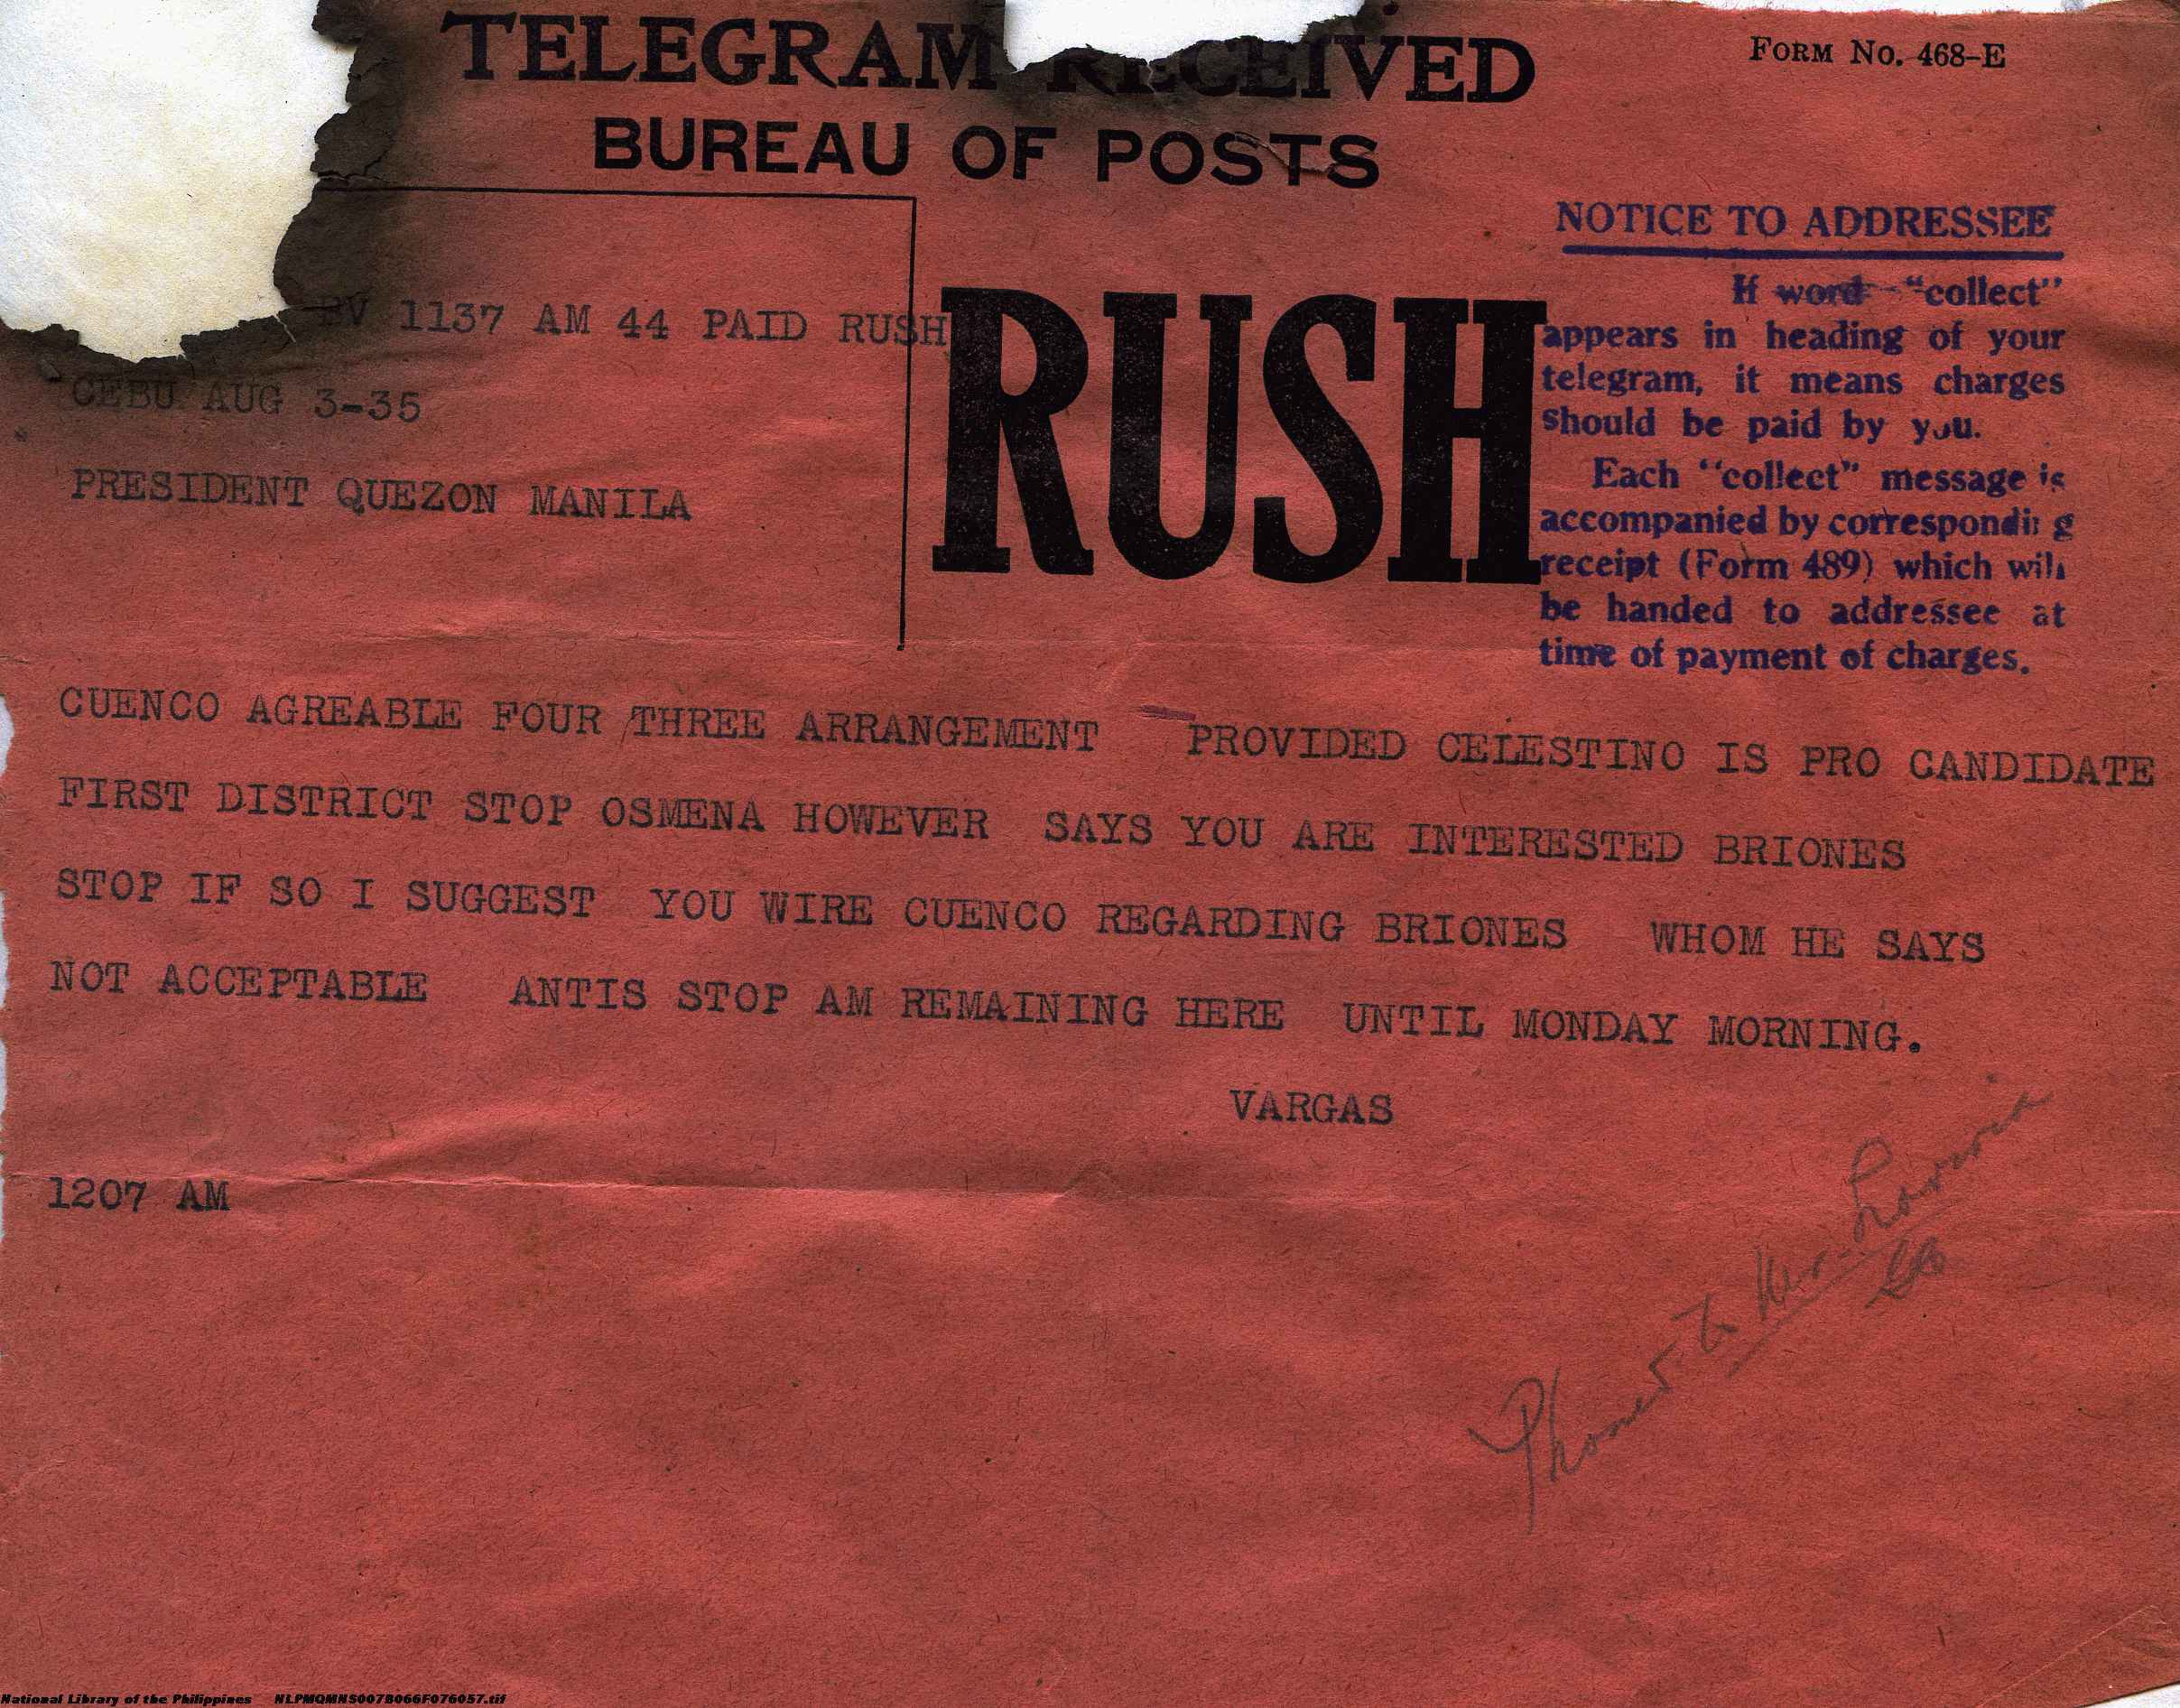 TELEGRAM RECEIVED
FORM NO. 468-E
BUREAU OF POSTS
NOTICE TO ADDRESSEE
If word "collect"
appears in heading of your
telegram, it means charges
should be paid by you.
Each "collect" message is
accompanied by corresponding
receipt (Form 489) which will
be handed to addressee at
time of payment of charges.
RUSH
1137 AM 44 PAID RUSH
CEBU AUG 3-35
PRESIDENT QUEZON MANILA
CUENCO AGREABLE FOUR THREE ARRANGEMENT PROVIDED CELESTINO IS PRO CANDIDATE
FIRST DISTRICT STOP OSMENA HOWEVER SAYS YOU ARE INTERESTED BRIONES
STOP IF SO I SUGGEST YOU WIRE CUENCO REGARDING BRIONES WHOM HE SAYS
NOT ACCEPTABLE ANTIS STOP AM REMAINING HERE UNTIL MONDAY MORNING.
VARGAS
1207 AM
Phoned to Mr.
National Library of the Philippines NLPMQMNS007B066F076057.tif